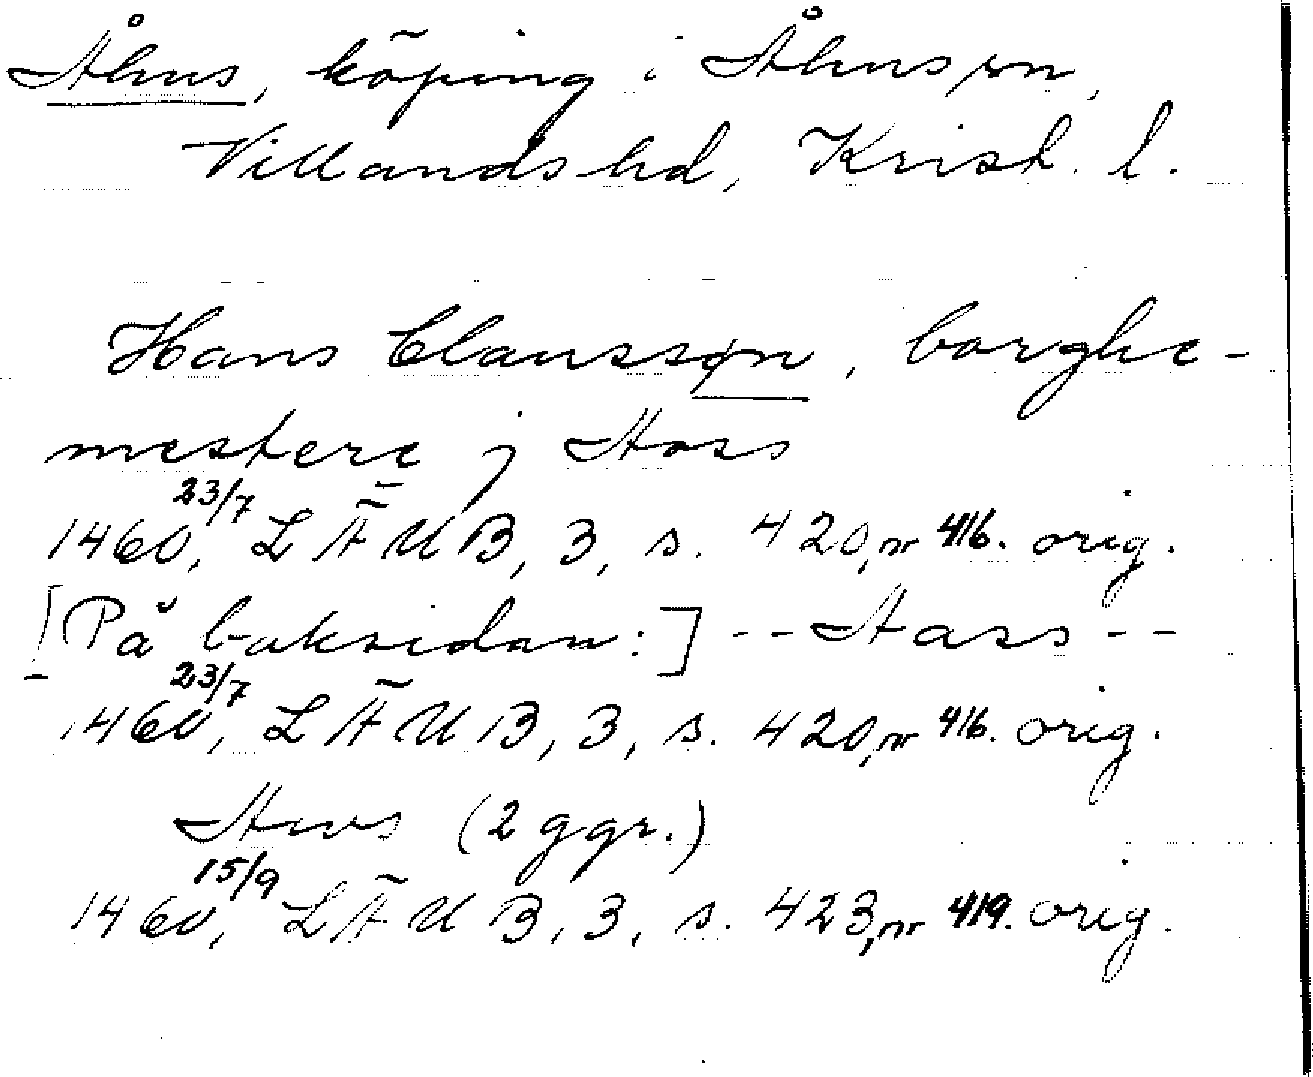 Åhus, köping i Åhus sn,
Villands hd, Krist. l.
Hans Claussøn, borghe-
mestere j Hoss
1460 23/7, LÄUB, 3, s. 420, nr 416. orig.
[På baksidan:] -- Aass --
1460 23/7, LÄUB, 3, s. 420, nr 416. orig.
Aws (2 ggr.)
1460 15/9, LÄUB, 3, s. 423, nr 419. orig.